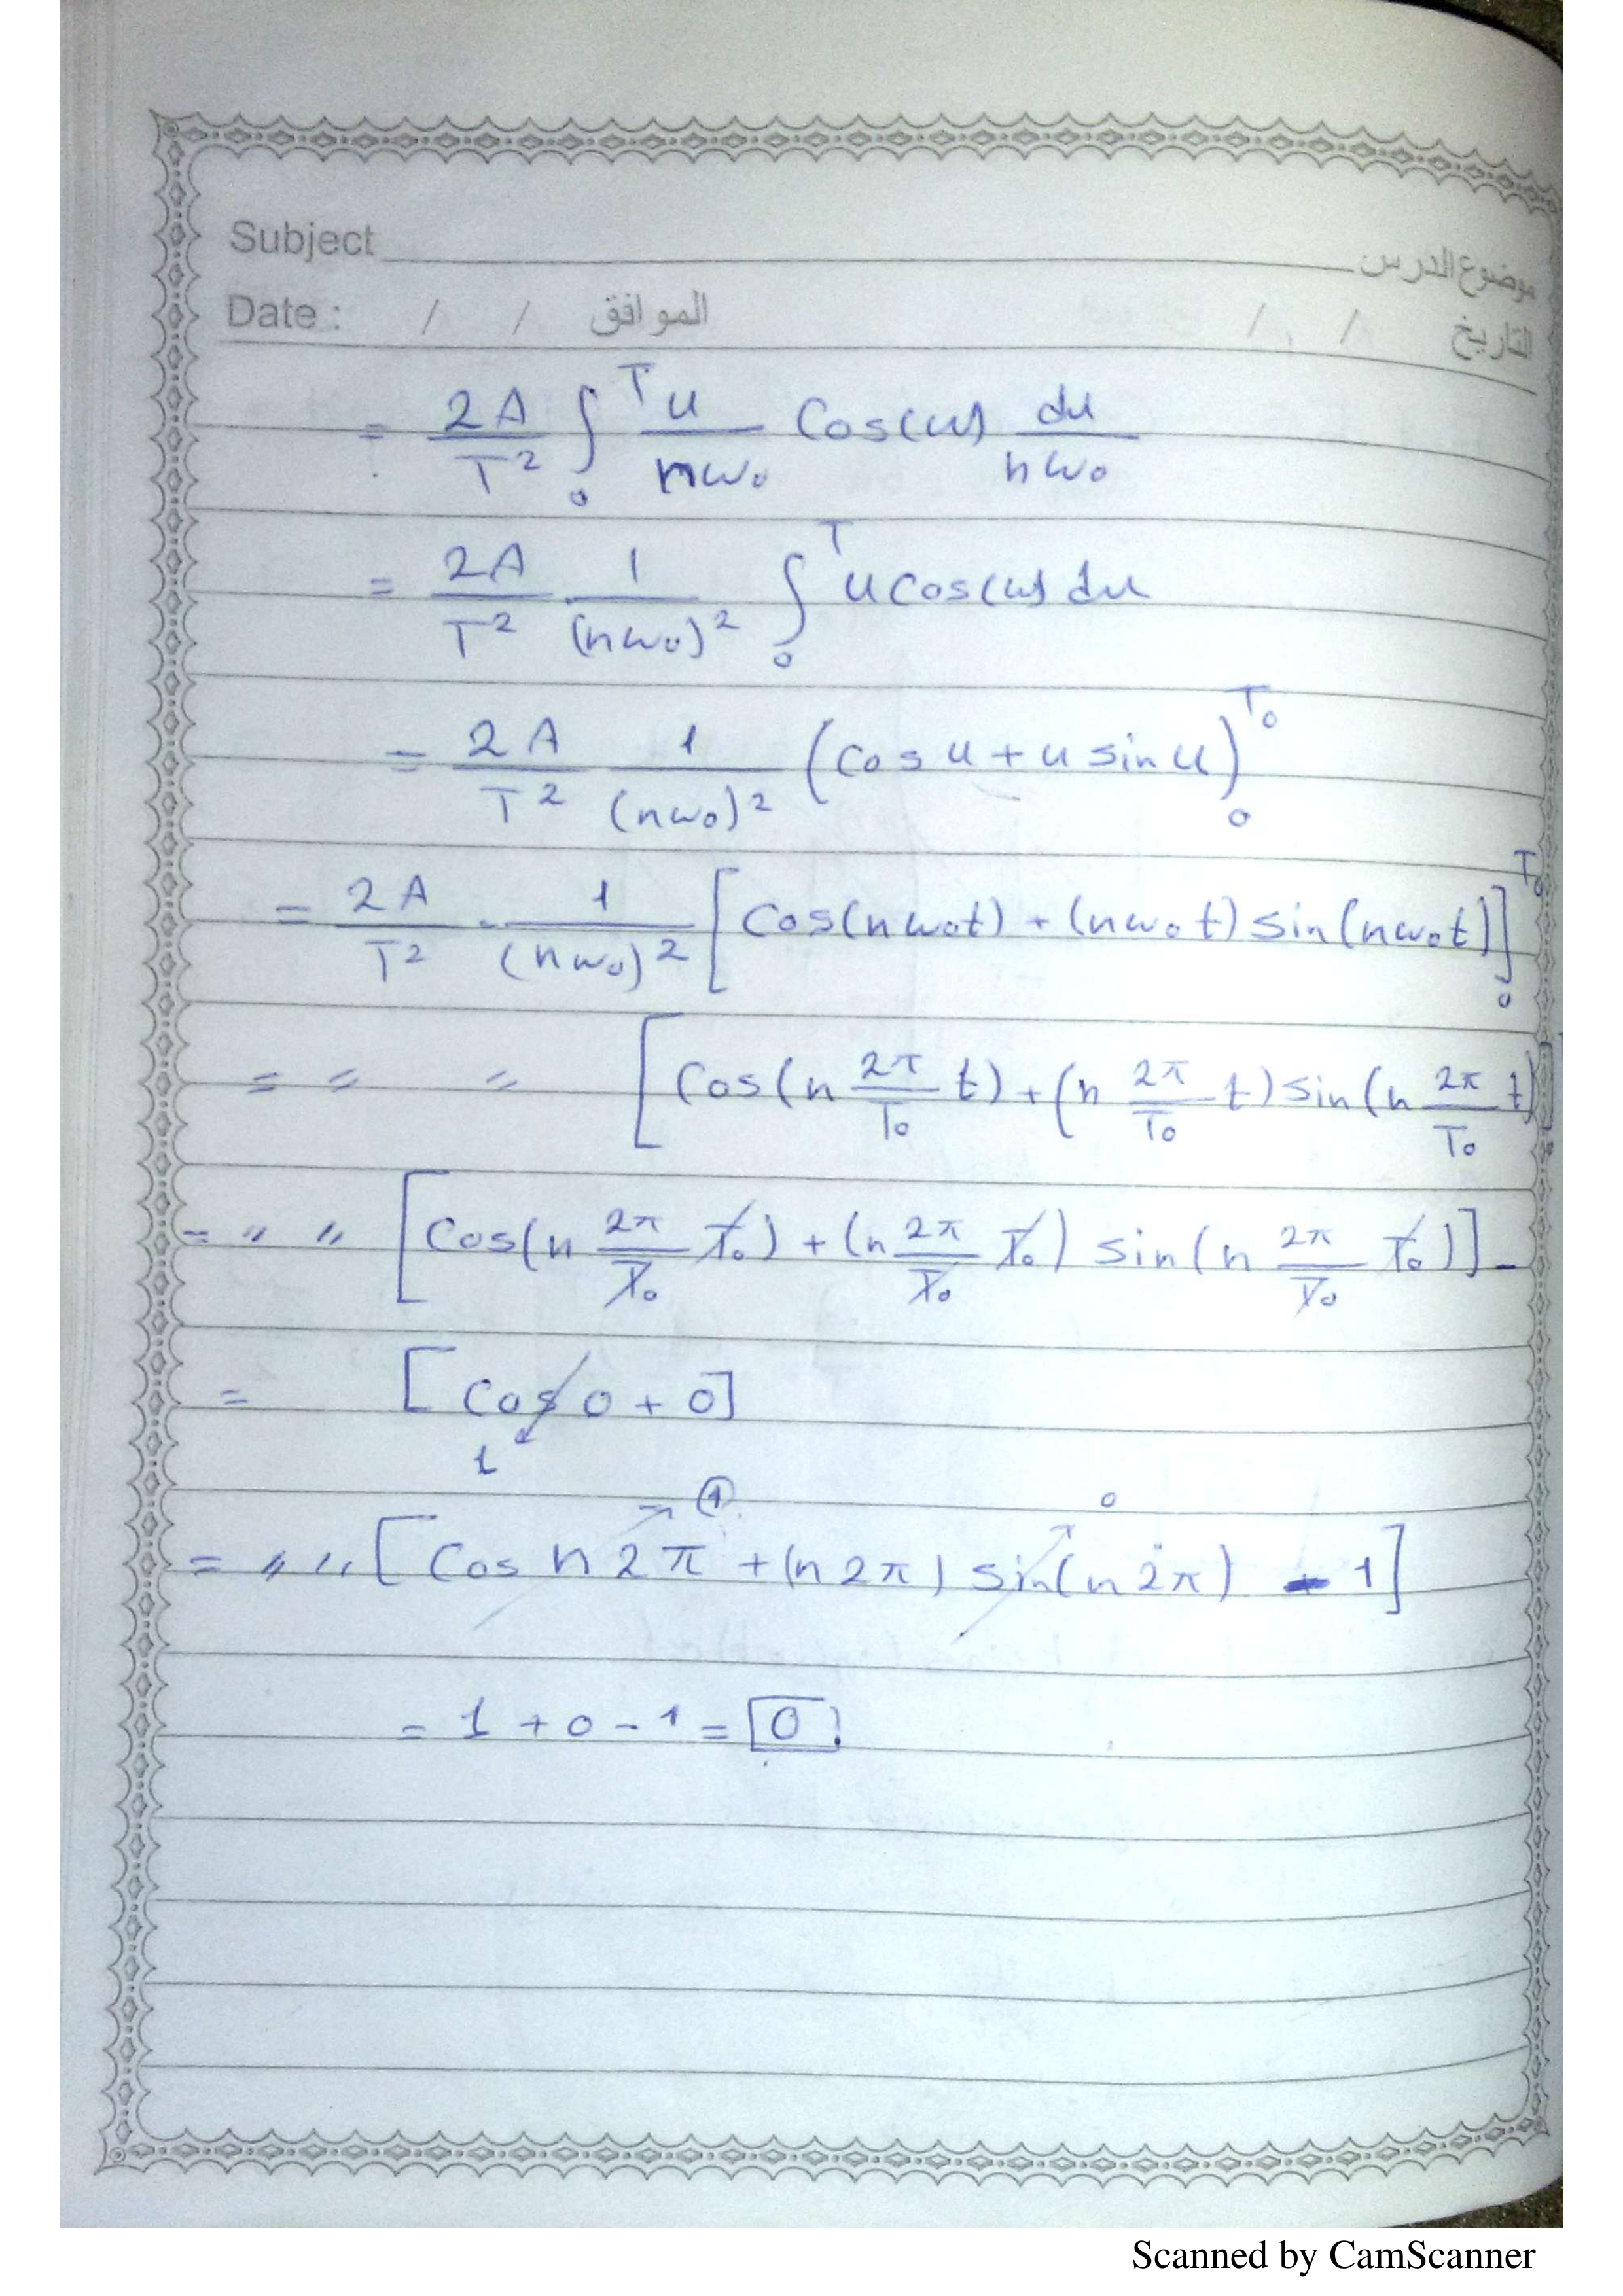 Subject موضوع الدرس
Date : / / الموافق / / التاريخ
= 2A/T² ∫₀ᵀ u/nω₀ Cos(u) du/nω₀
= 2A/T² 1/(nω₀)² ∫₀ᵀ u cos(u) du
= 2A/T² 1/(nω₀)² (cos u + u sin u)₀ᵀ⁰
= 2A/T² · 1/(nω₀)² [Cos(nω₀t) + (nω₀t) sin(nω₀t)]₀ᵀ⁰
= 〃 〃 [Cos(n 2π/T₀ t) + (n 2π/T₀ t) sin(n 2π/T₀ t)]
= 〃 〃 [Cos(n 2π/T₀ T₀) + (n 2π/T₀ T₀) sin(n 2π/T₀ T₀)] -
= [Cos 0 + 0]
1
1 0
= 〃 〃 [Cos n2π + (n2π) sin(n2π) - 1]
= 1 + 0 - 1 = 0
Scanned by CamScanner